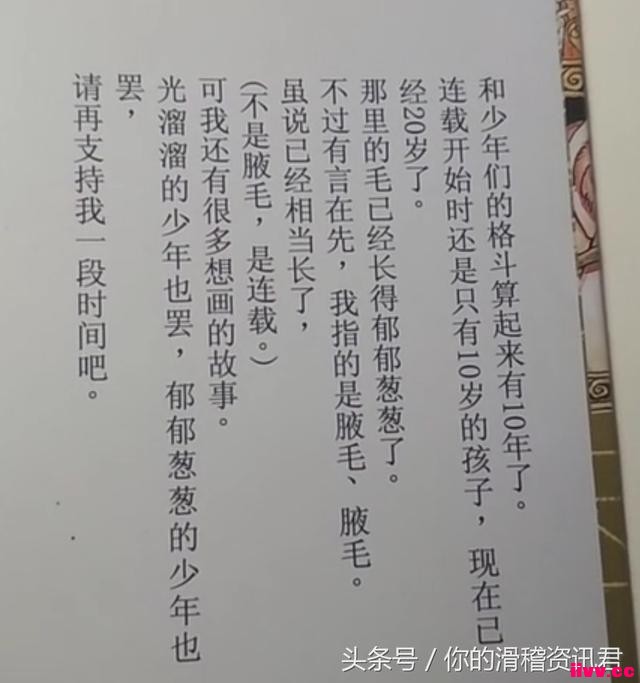 和少年们的格斗算起来有10年了。
连载开始时还是只有10岁的孩子，现在已
经20岁了。
那里的毛已经长得郁郁葱葱了。
不过有言在先，我指的是腋毛、腋毛。
虽说已经相当长了，
(不是腋毛，是连载。)
可我还有很多想画的故事。
光溜溜的少年也罢，郁郁葱葱的少年也
罢，
请再支持我一段时间吧。
头条号 / 你的滑稽资讯君
iivv.cc